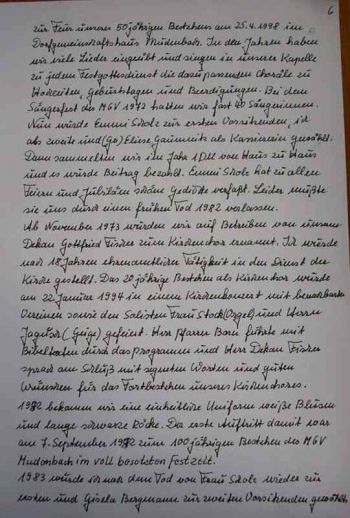 6
zur Feier unseres 50 jährigen Bestehens am 25.4.1998 im
Dorfgemeinschaftshaus Mudenbach. In den Jahren haben
wir viele Lieder eingeübt und singen in unserer Kapelle
zu jedem Festgottesdienst die dazu passenden Choräle zu
Hochzeiten, Geburtstagen und Beerdigungen. Bei dem
Sängerfest des MGV 1973 hatten wir fast 40 Sängerinnen.
Nun wurde Emmi Scholz zur ersten Vorsitzenden, ich
als zweite und Elise Gaumnitz als Kassiererin gewählt.
Dann sammelten wir im Jahr 1 DM von Haus zu Haus
und es wurde Beitrag bezahlt. Emmi Scholz hat zu allen
Feiern und Jubiläen schöne Gedichte verfaßt. Leider mußte
sie uns durch einen frühen Tod 1982 verlassen.
Ab November 1973 wurden wir auf Betreiben von unserem
Dekan Gottfried Fischer zum Kirchenchor ernannt. Ich wurde
nach 18 Jahren ehrenamtlicher Tätigkeit in den Dienst der
Kirche gestellt. Das 20 jährige Bestehen als Kirchenchor wurde
am 22. Januar 1994 in einem Kirchenkonzert mit benachbarten
Vereinen sowie den Solisten Frau Stock (Orgel) und Herrn
(Geige) gefeiert. Herr Pfarrer führte mit
Bibeltexten durch das Programm und Herr Dekan Fischer
sprach am Schluß mit segnenden Worten und guten
Wünschen für das Fortbestehen unseres Kirchenchores.
1982 bekamen wir eine einheitliche Uniform weiße Blusen
und lange schwarze Röcke. Der erste Auftritt damit war
am 7. September 1982 zum 100 jährigen Bestehen des MGV
Mudenbach im voll besetzten Festzelt.
1983 wurde ich nach dem Tod von Frau Scholz wieder zur
ersten und Gisela Bergmann zur zweiten Vorsitzenden gewählt.